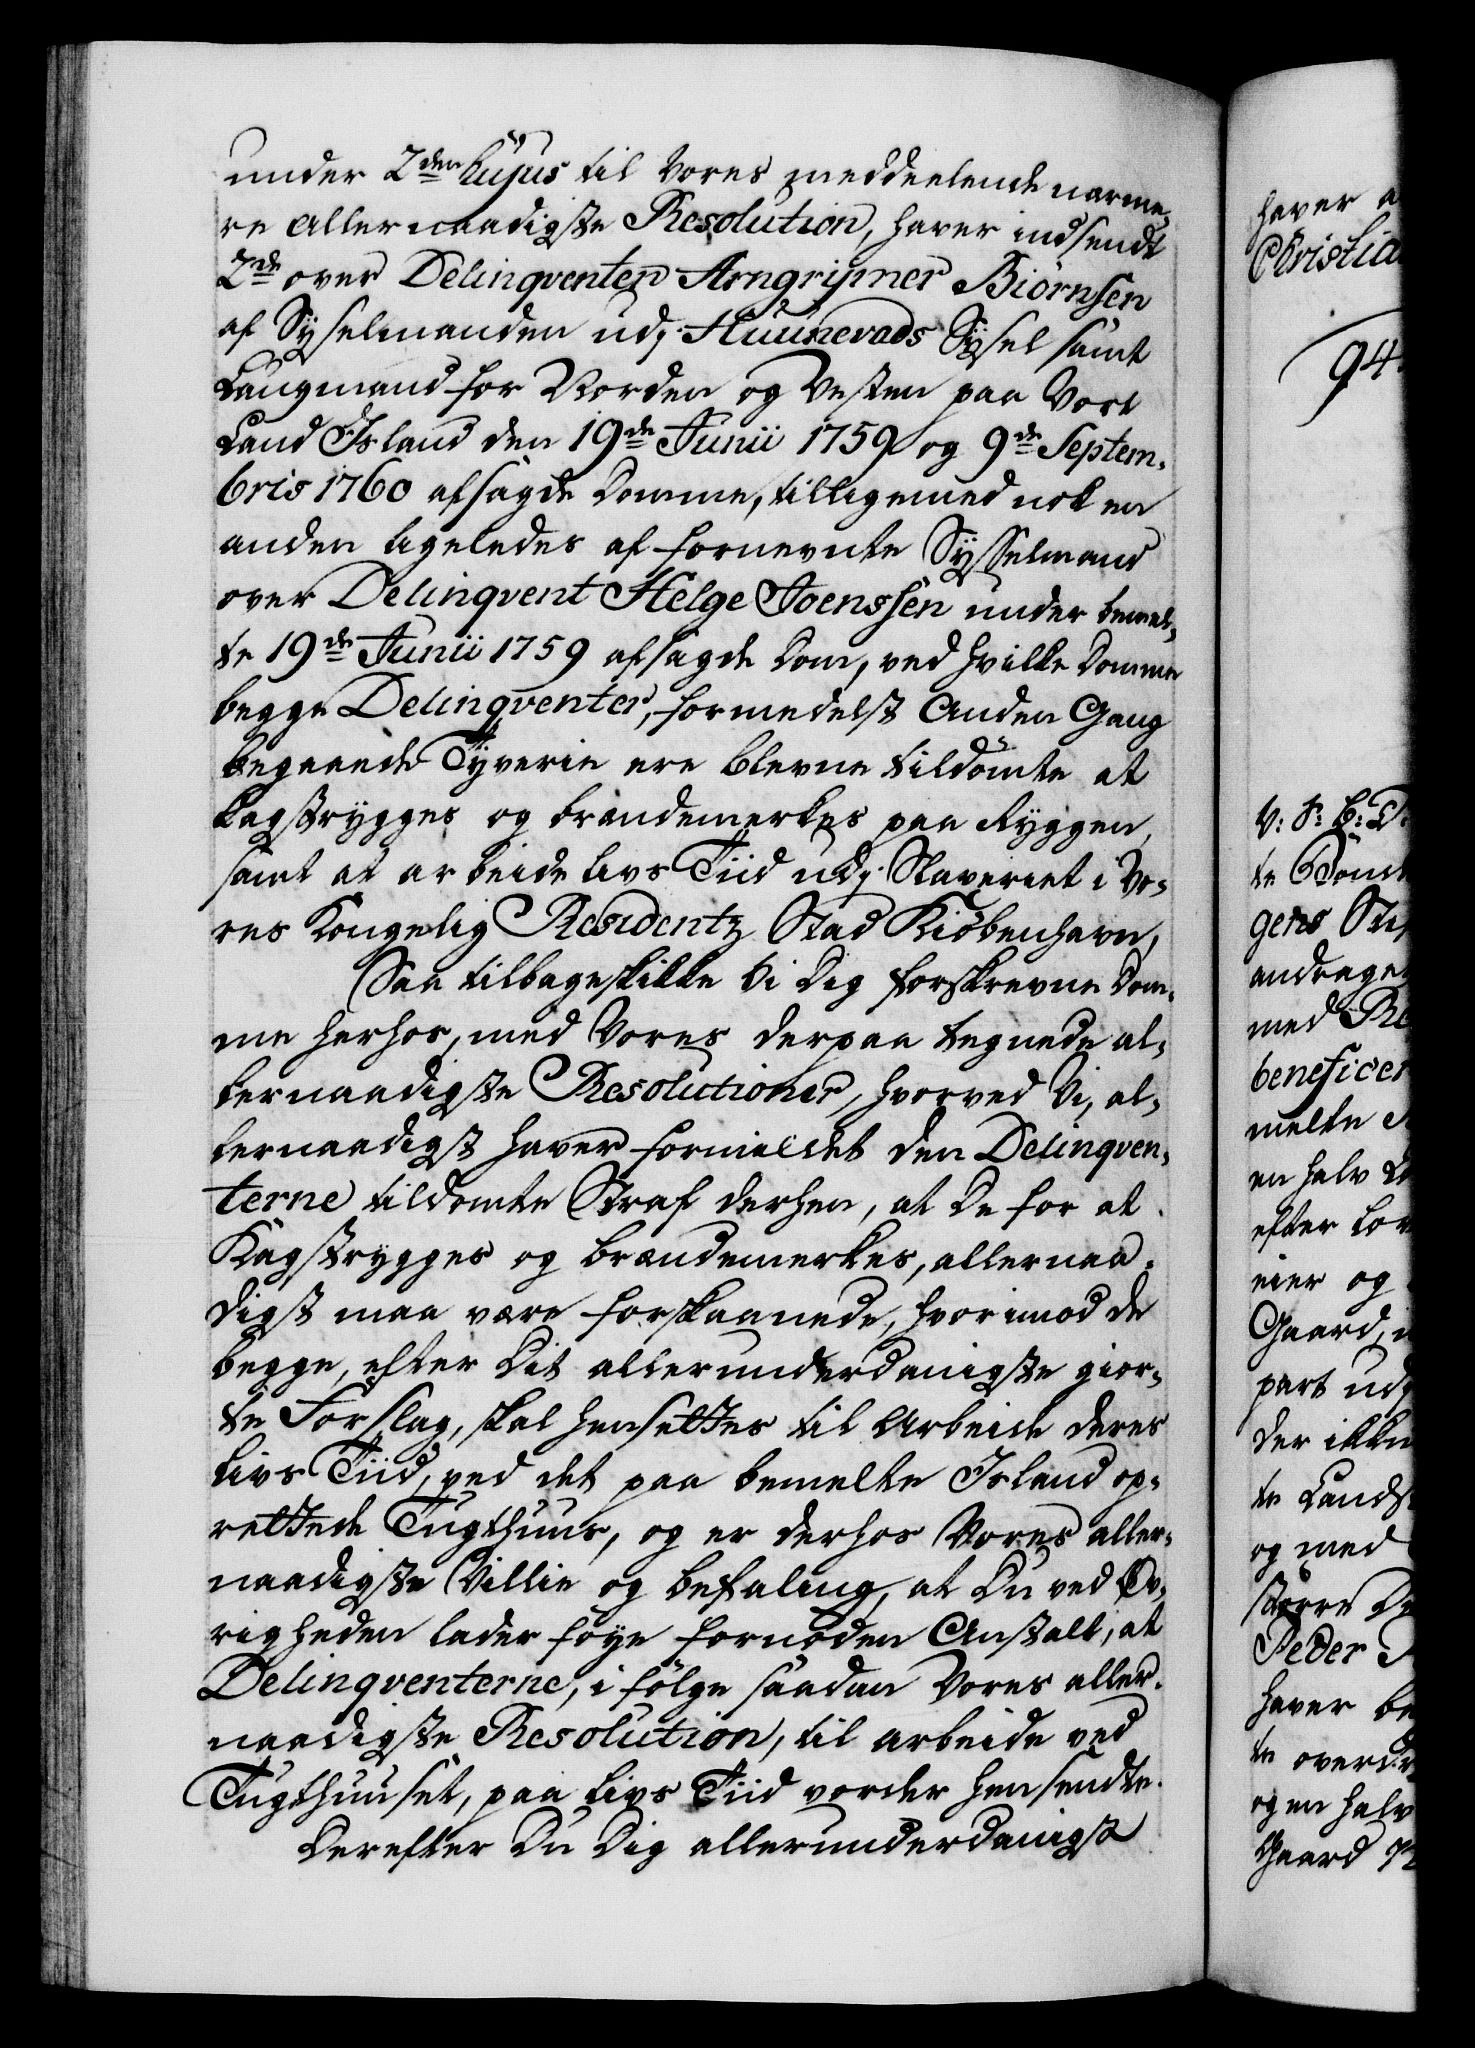 under 2den hujus til Vores meddeelende narme-
re allernaadigste Resolution, haver indsendt
2de over Delinqventen Arngrijmer Biörnsen
af Sysselmanden udj Huunevads Sysel samt
Laugmand for Norden og Vesten paa Vort
Land Island den 19de Junii 1759 og 9de Septem-
bris 1760 afsagde Domme, tilligemed nok en
anden ligeledes af fornevnte Sysselmand
over Delinqvent Helge Joenssen under bemel-
te 19de Junii 1759 afsagde Dom, ved hvilke Domme
begge Delinqventer, formedelst Anden Gang
begaaende Tyverie ere blevne tildömte at
kagstrygges og brændemerkes paa Ryggen,
samt at arbeide livs Tiid udj Slaveriet i Vo-
res Kongelig Residentz Stad Kiöbenhavn,
Saa tilbageskikke Vi Dig forskrevne Dom-
me herhos, med Vores derpaa tegnede al-
lernaadigste Resolutioner, hvorved Vi, al-
lernaadigst haver formildet den Delinqven-
terne tildömte Straf derhen, at De for at
Kagstrygges og brændemerkes, allernaa-
digst maa være forskaanede, hvorimod de
begge, efter Dit allerunderdanigste gior-
te Forslag, skal hensettes til Arbeide deres
livs Tiid, ved det paa bemelte Island op-
rettede Tugthuus, og er derhos Vores aller-
naadigste Villie og befaling, at Du ved Öv-
righeden lader föye fornöden Anstalt, at
Delinqventerne, i fölge saadan Vores aller-
naadigste Resolution, til arbeide ved
Tugthuuset, paa livs Tiid vorder hensendte.
Derefter Du Dig allerunderdanigst
haver
Christia
94.
V: F: C: T:
te Dom
gens Stif
andrage
med Re
beneficer
melte
en halv
efter lov
eier og
Gaard, i
part udj
der ikke
te Lands
og med
större
Peder
haver be
te overdr
og en halv
Gaard